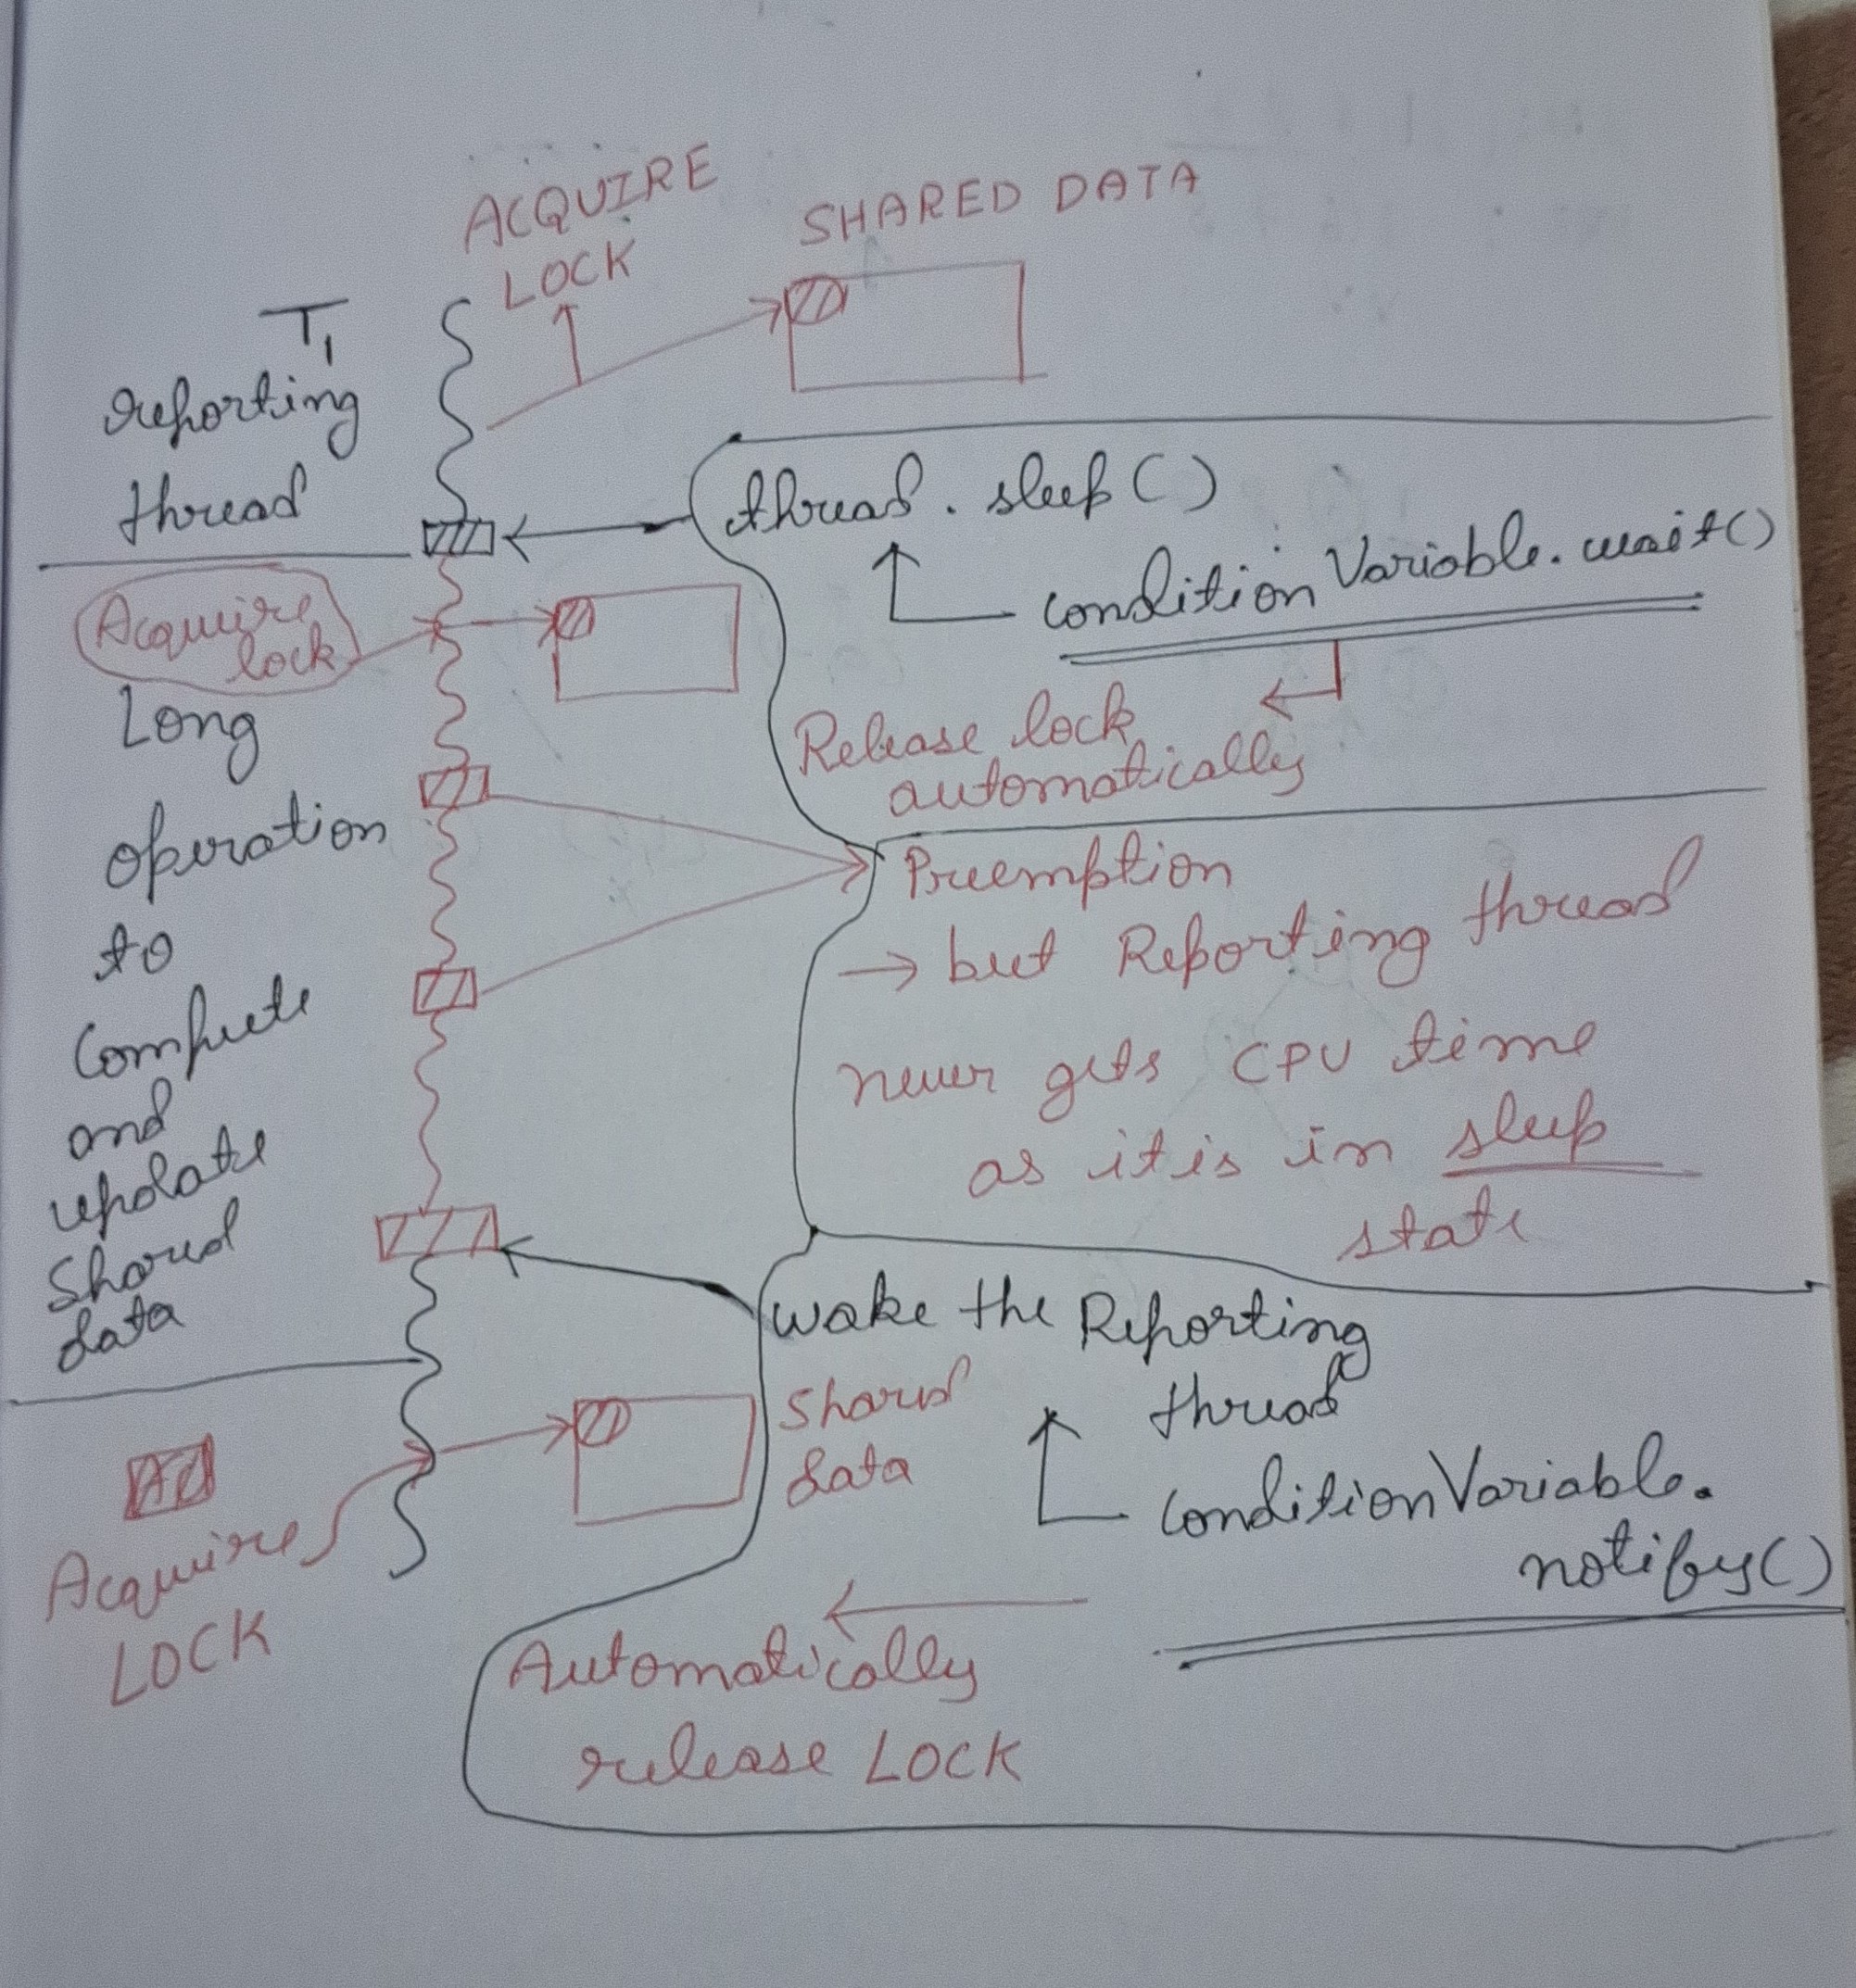 ACQUIRE
LOCK
SHARED DATA
T1
reporting
thread
thread.sleep()
conditionVariable.wait()
Release lock
automatically
Acquire
lock
Long
operation
to
Compute
and
update
Shared
data
Preemption
→ but Reporting thread
never gets CPU time
as it is in sleep
state
wake the Reporting
thread
conditionVariable.
notify()
Shared
data
Acquire
LOCK
Automatically
release LOCK